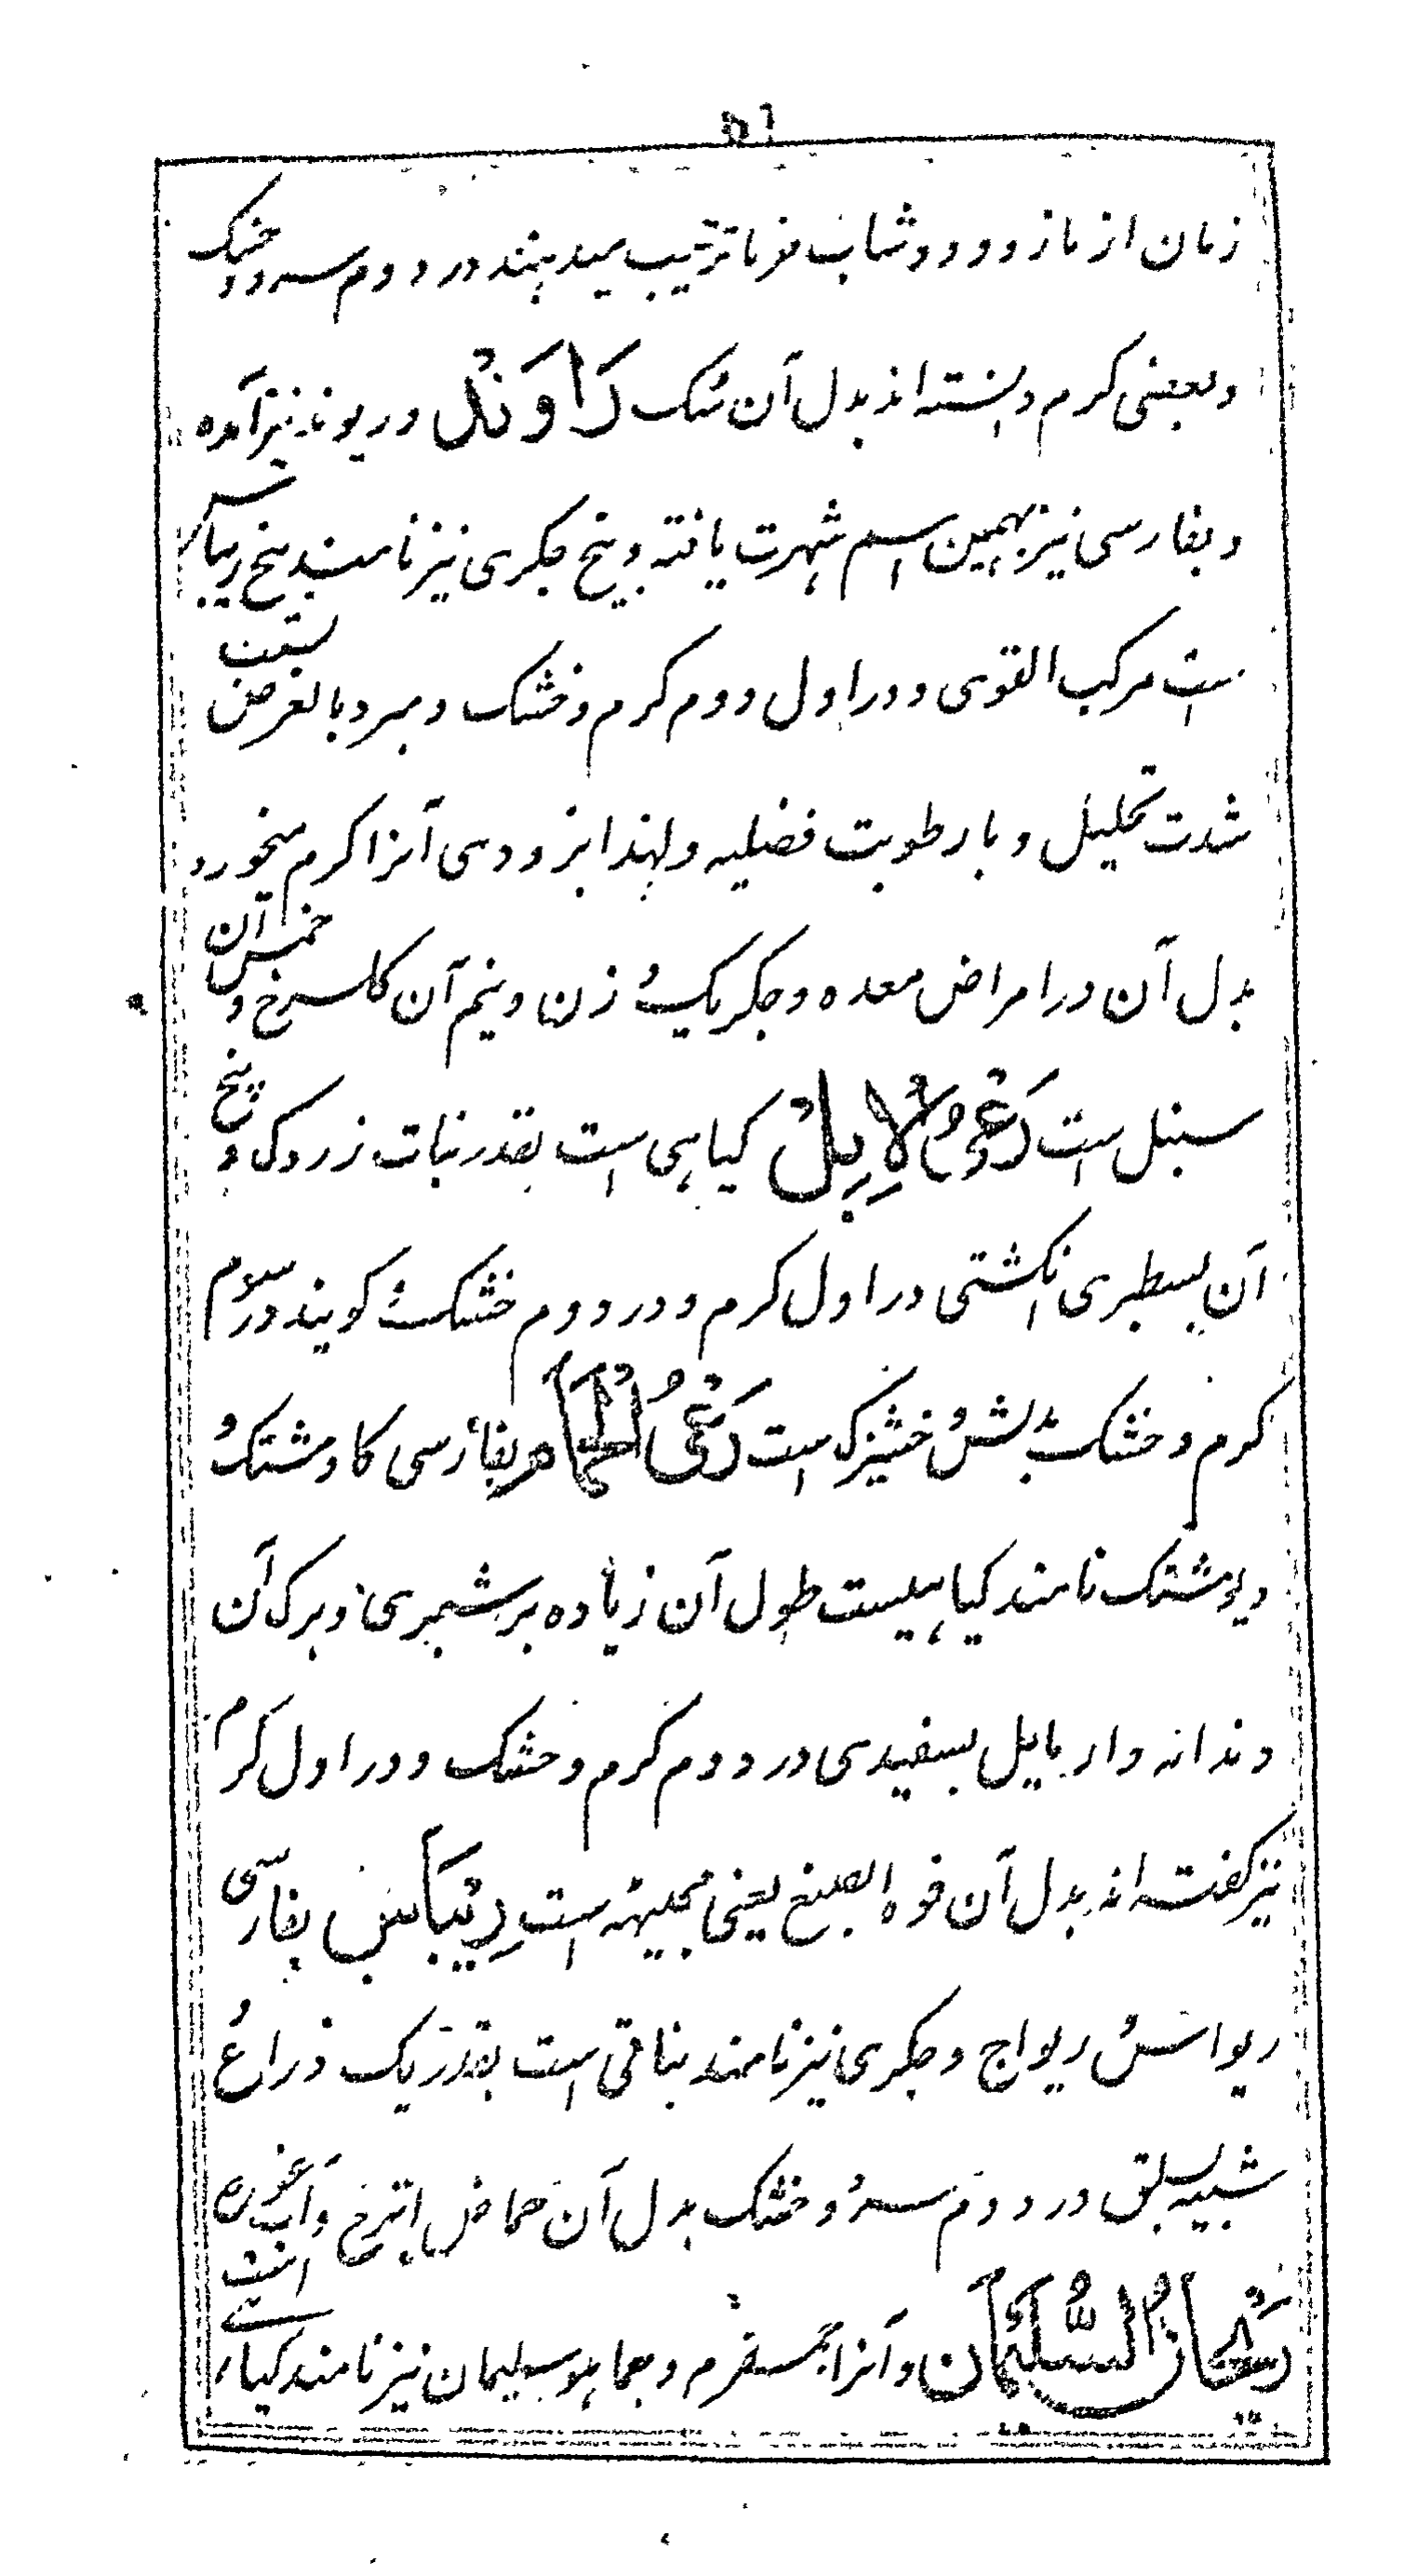 ۵۶
زمان از مازو و دوشاب خرما ترتیب میدهند در دوم سرد و خشک
و بعضی کرم دانسته اند بدل آن سک رَاوَنْد و ریوند نیز آمده
و بفارسی نیز بهمین اسم شهرت یافته و بیخ جکری نیز نامند بیخ ریباس
است مرکب القوی و در اول دوم کرم و خشک و مبرد بالعرض بسبب
شدت تحلیل و با رطوبت فضلیه و لهذا بزودی آنرا کرم میخورد
بدل آن در امراض معده و جکر یک وزن و نیم آن کلسرخ و خمس آن
سنبل است رَعْیُ الاِبِلْ کیاهی است بقدر نبات زردک و بیخ
آن بسطبری انکشتی در اول کرم و در دوم خشک و کویند در سوم
کرم و خشک بدلش خشیزک است رَعْیُ الْحَمَام بفارسی کاومشتک و
دیومشتک نامند کیاهیست طول آن زیاده بر شبری و برک آن
دندانه دار مایل بسفیدی در دوم کرم و خشک و در اول کرم
نیز کفته اند بدل آن فوه الصبغ یعنی مجیتهه است رِیْبَاس بفارسی
ریواس و ریواج و جکری نیز نامند نباتی است بقدر یک ذراع و
شبیه بسلق در دوم سرد و خشک بدل آن حماض اترج و آب غوره است
رَیْحَانُ السُّلَیْمَان و آنرا جمسفرم و جماهو سلیمان نیز نامند کیاهی